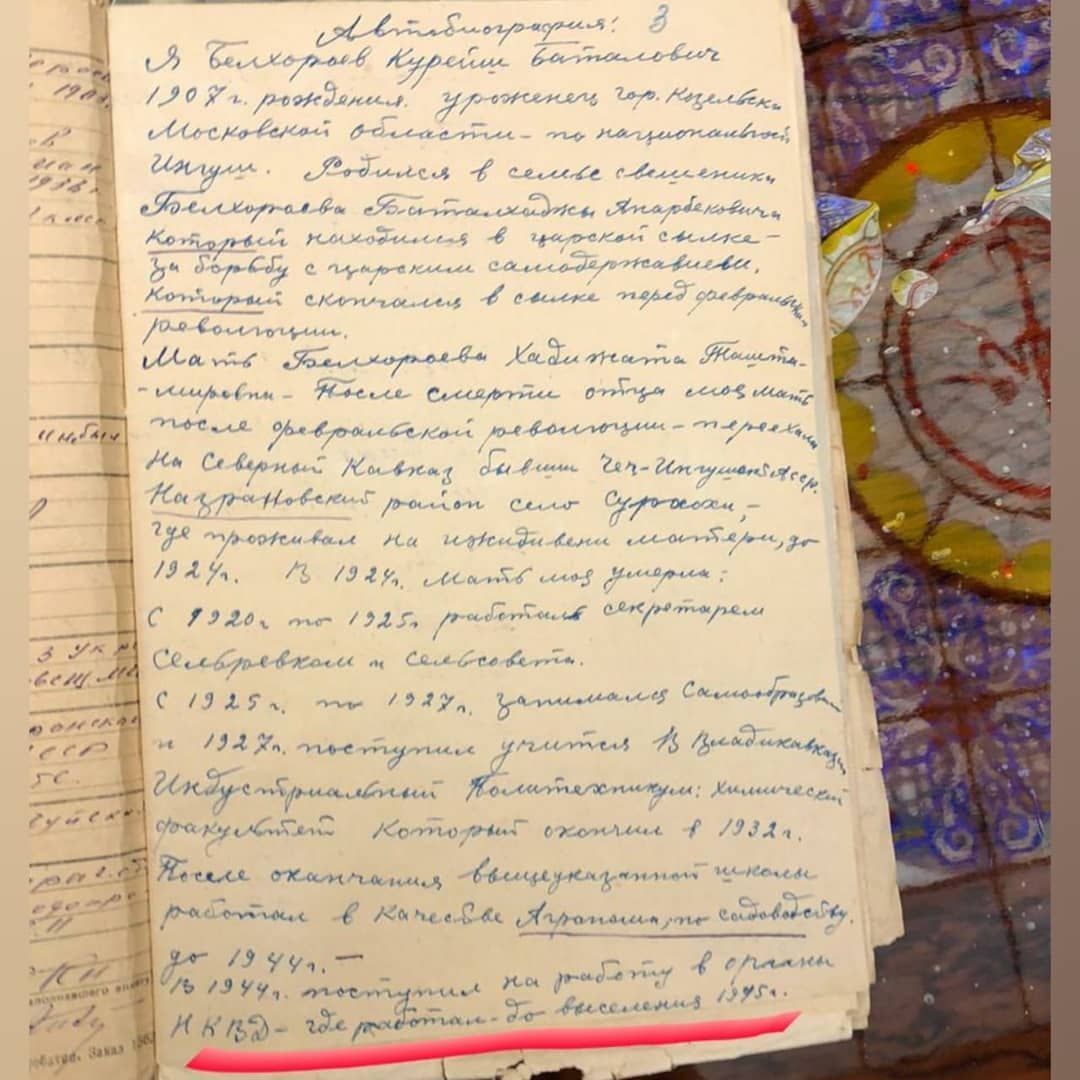 Автобиография! 3
Я Белхороев Курейш Баталович
1907 г. рождения. уроженец гор. Козельска
Московской области – по национальной
Ингуш. Родился в семье свешеника
Белхороева Баталхаджы Анарбековича
который находился в царской сылке –
за борьбу с царским самодержавиеви.
который скончался в сылке перед февральской
революции.
Мать Белхороева Хадижата Ташта-
-мировна – После смерти отца моя мать
после февральской революции – переехала
на Северной Кавказ бывши Чеч-Ингушской Асср.
Назрановский район село Сурхохи, –
где проживал на иждивени матери, до
1924 г. В 1924 г. мать моя умерла:
С 1920 г по 1925 г работал секретарем
Сельревком и сельсовета.
С 1925 г. по 1927 г. занимался самообразован
и 1927 г. поступил учится В Владикавказ
Индустриальный Политехникум: химический
факультет который окончил в 1932 г.
После окончания вышеуказанной школы
работал в качестве Агронома, по садоводству.
до 1944 г. –
В 1944 г. поступил на работу в органы
НКВД – где работал – до выселения 1945 г.